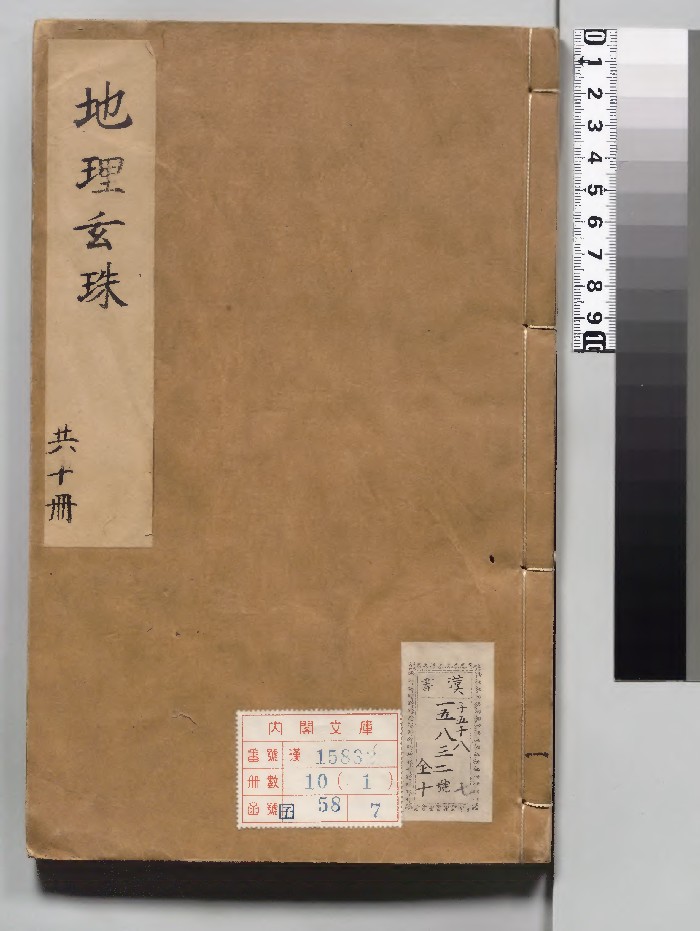 地理玄珠
共十冊
漢書
子五十八
一五八三二號
全十
七
內閣文庫
番號 漢 1583
冊數 10 ( 1 )
函號 子 58 7
0 1 2 3 4 5 6 7 8 9 10